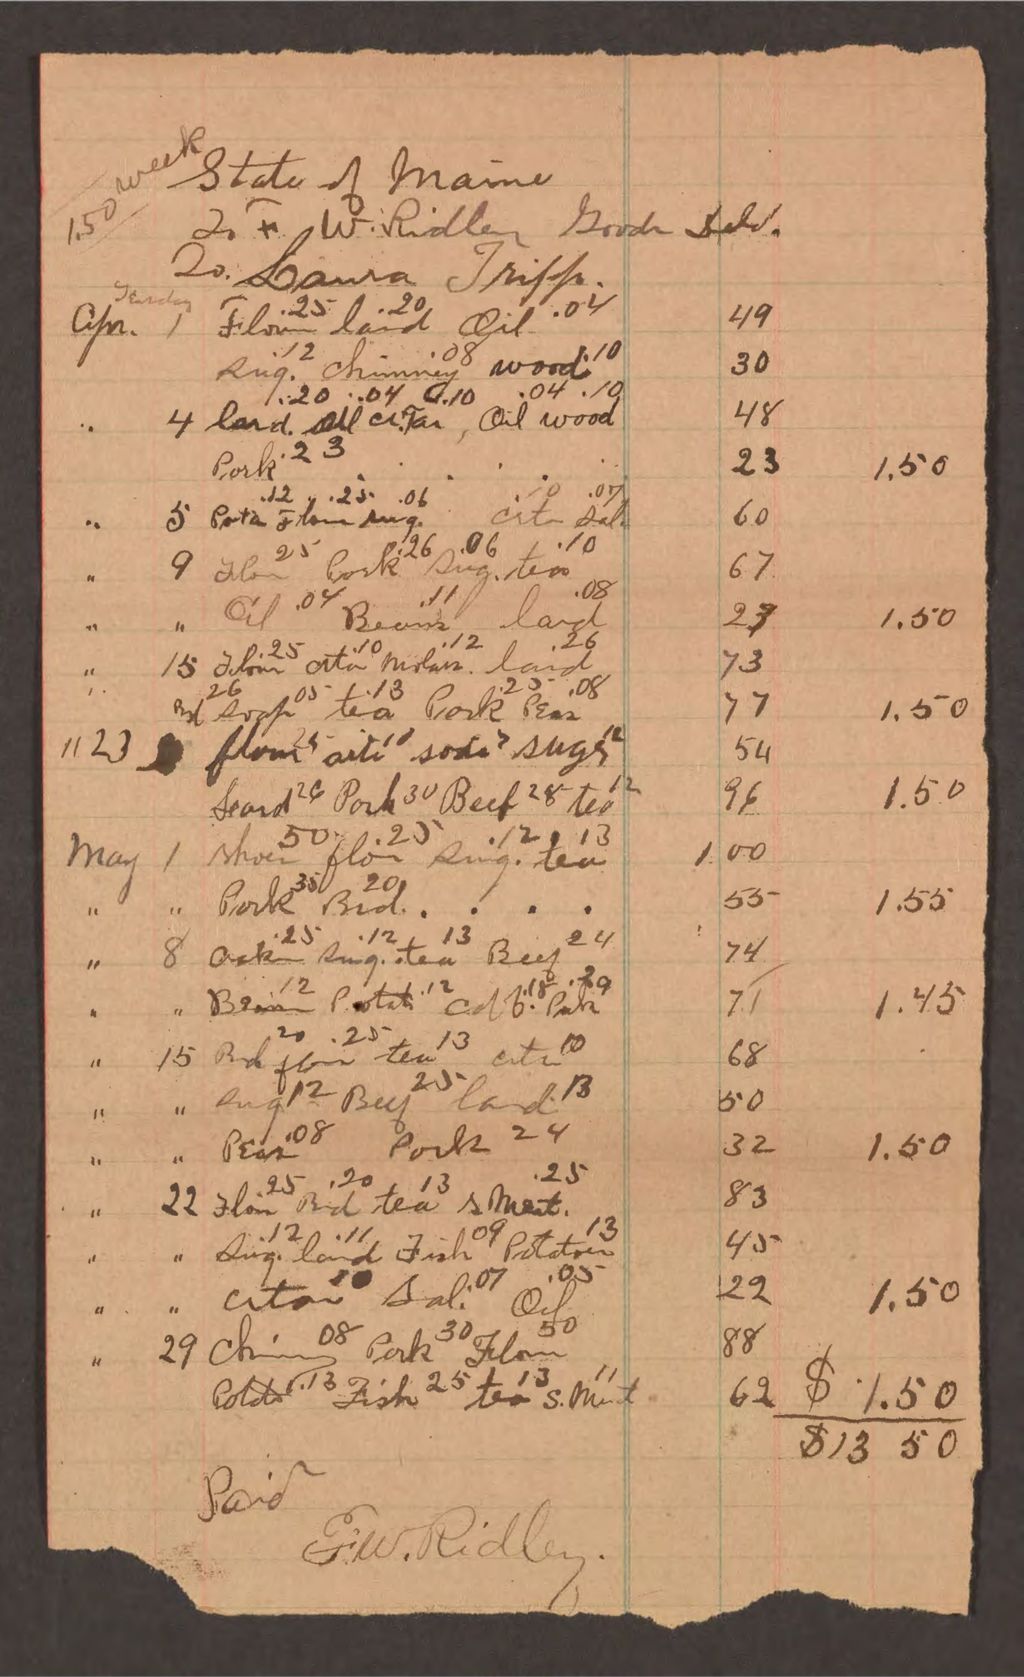 1.50 week
State of Maine
To F. W. Ridley Goods Deld.
To. Laura Tripp.
Tuesday
Apr. 1 Flour .25 lard .20 Oil .04 49
Sug. .12 Chimney .08 wood .10 30
" 4 lard. .20 .04 Cr.Tar .10, Oil .04 wood .10 48
Pork .23 . . . . . 23 1.50
" 5 Pota .12 Flour .25 Sug. .06 Crta .10 Sal. .07 60
" 9 Flour 25 Pork .26 Sug. .06 tea .10 67
" " Oil .04 Beans .11 lard .08 23 1.50
" 15 Flour .25 crta .10 Molass. .12 lard .26 73
Brd 26 Soap 05 tea .13 Pork .25 Peas .08 77 1.50
" 23 flour 25 arti 10 soda 7 sugr 12 54
Leard 26 Pork 30 Beef 28 tea 12 96 1.50
May 1 Shoes 50 flou .25 Sug. .12 tea 13 1 00
" " Pork 35 Brd. 20 . . . . 55 1.55
" 8 Crak .25 Sug. .12 tea 13 Beef 24 74
" " Beans 12 Potat .12 .18 Pork .29 71 1.45
" 15 Brd 20 flour .25 tea 13 crta 10 68
" " Sug 12 Beef 25 lard 13 50
" " Peas .08 Pork 24 32 1.50
" 22 Flour 25 Brd .20 tea 13 S Meat. .25 83
" " Sug. .12 lard .11 Fish 09 Potatoes 13 45
" " crtar 10 Sal. .07 Oil .05 22 1.50
" 29 Chimny 08 Pork 30 Flour 50 88
Potato .13 Fish 25 tea 13 S. Meat 11 62 $ 1.50
$13 50
Paid
F.W. Ridley.